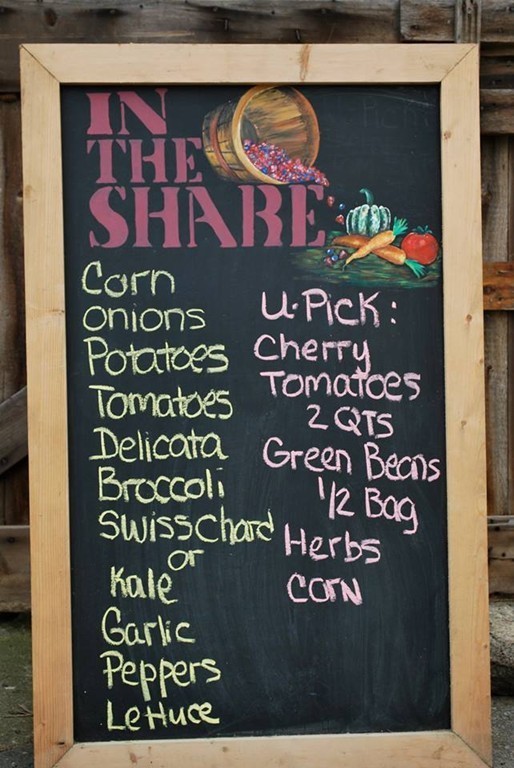 IN
THE
SHARE
Corn
onions
Potatoes
Tomatoes
Delicata
Broccoli
Swiss Chard
or
Kale
Garlic
Peppers
Lettuce
U-Pick:
Cherry
Tomatoes
2 QTS
Green Beans
1/2 Bag
Herbs
Corn